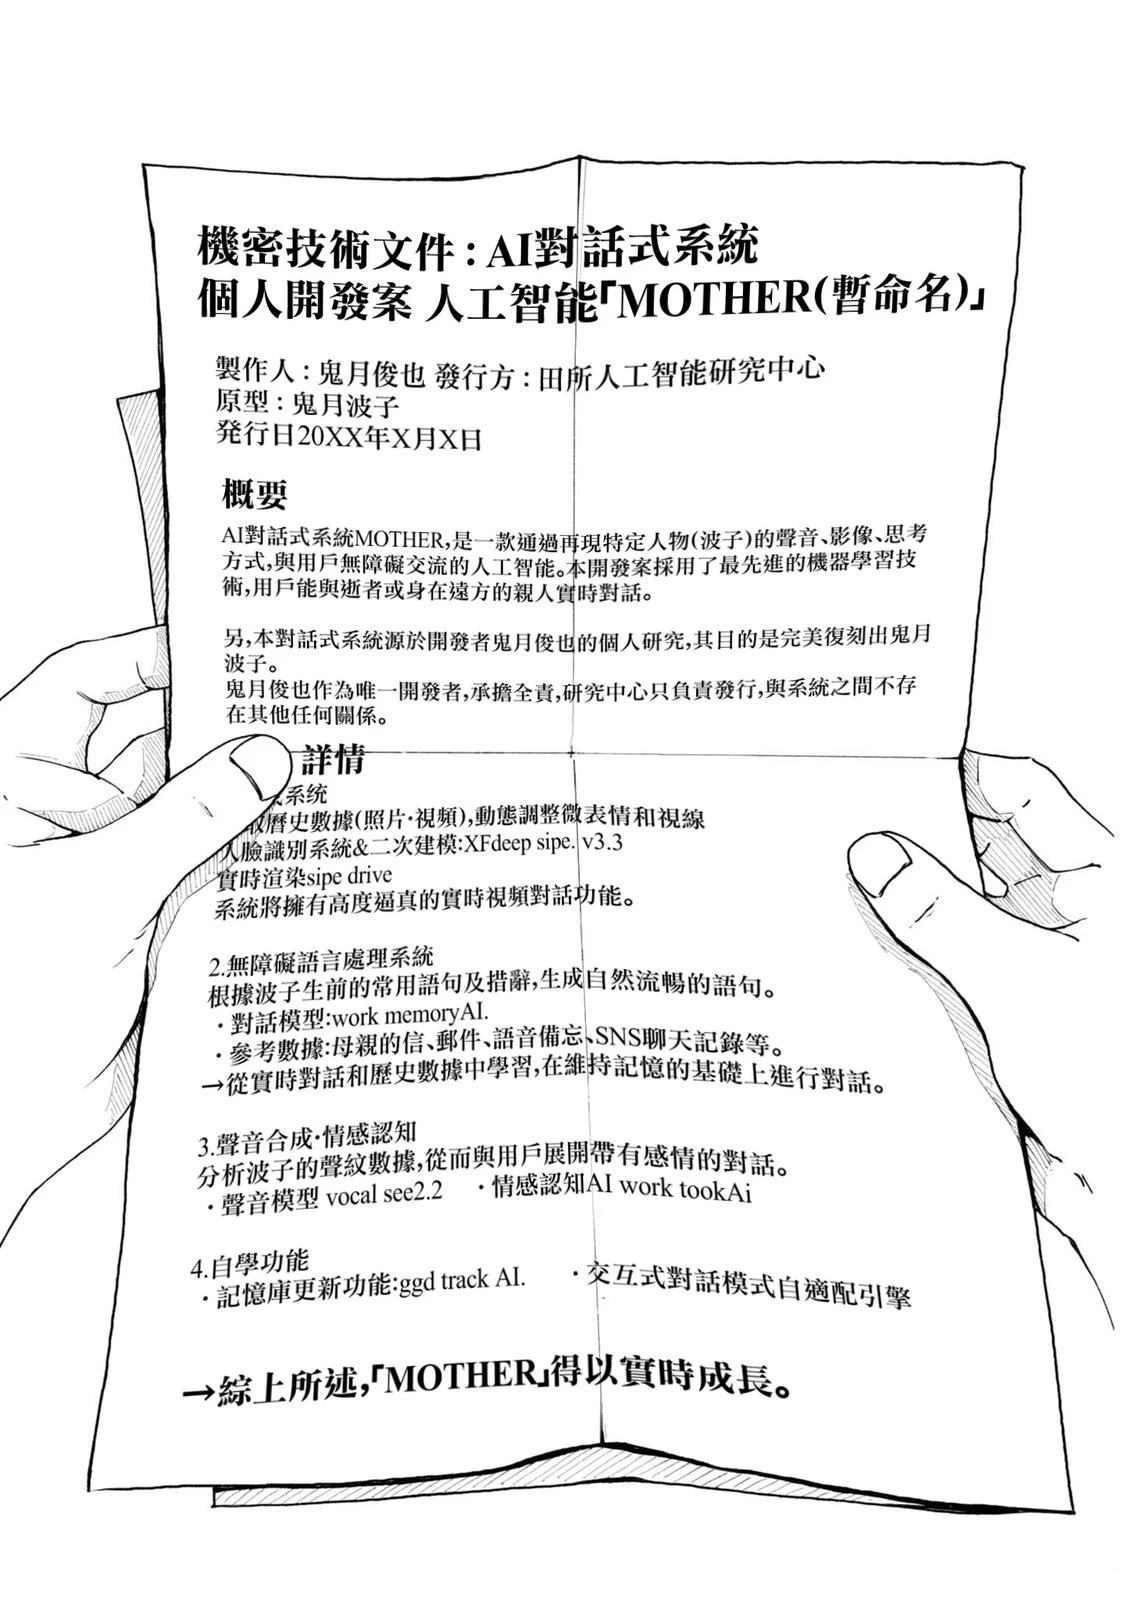 機密技術文件：AI對話式系統
個人開發案 人工智能「MOTHER(暫命名)」
製作人：鬼月俊也 發行方：田所人工智能研究中心
原型：鬼月波子
発行日20XX年X月X日
概要
AI對話式系統MOTHER,是一款通過再現特定人物(波子)的聲音、影像、思考
方式,與用戶無障礙交流的人工智能。本開發案採用了最先進的機器學習技
術,用戶能與逝者或身在遠方的親人實時對話。
另,本對話式系統源於開發者鬼月俊也的個人研究,其目的是完美復刻出鬼月
波子。
鬼月俊也作為唯一開發者,承擔全責,研究中心只負責發行,與系統之間不存
在其他任何關係。
詳情
系统
曆史數據(照片·視頻),動態調整微表情和視線
人臉識別系統&二次建模:XFdeep sipe. v3.3
實時渲染sipe drive
系統將擁有高度逼真的實時視頻對話功能。
2.無障礙語言處理系統
根據波子生前的常用語句及措辭,生成自然流暢的語句。
·對話模型:work memoryAI.
·參考數據:母親的信、郵件、語音備忘、SNS聊天記錄等。
→從實時對話和歷史數據中學習,在維持記憶的基礎上進行對話。
3.聲音合成·情感認知
分析波子的聲紋數據,從而與用戶展開帶有感情的對話。
·聲音模型 vocal see2.2 ·情感認知AI work tookAi
4.自學功能
·記憶庫更新功能:ggd track AI. ·交互式對話模式自適配引擎
→綜上所述,「MOTHER」得以實時成長。